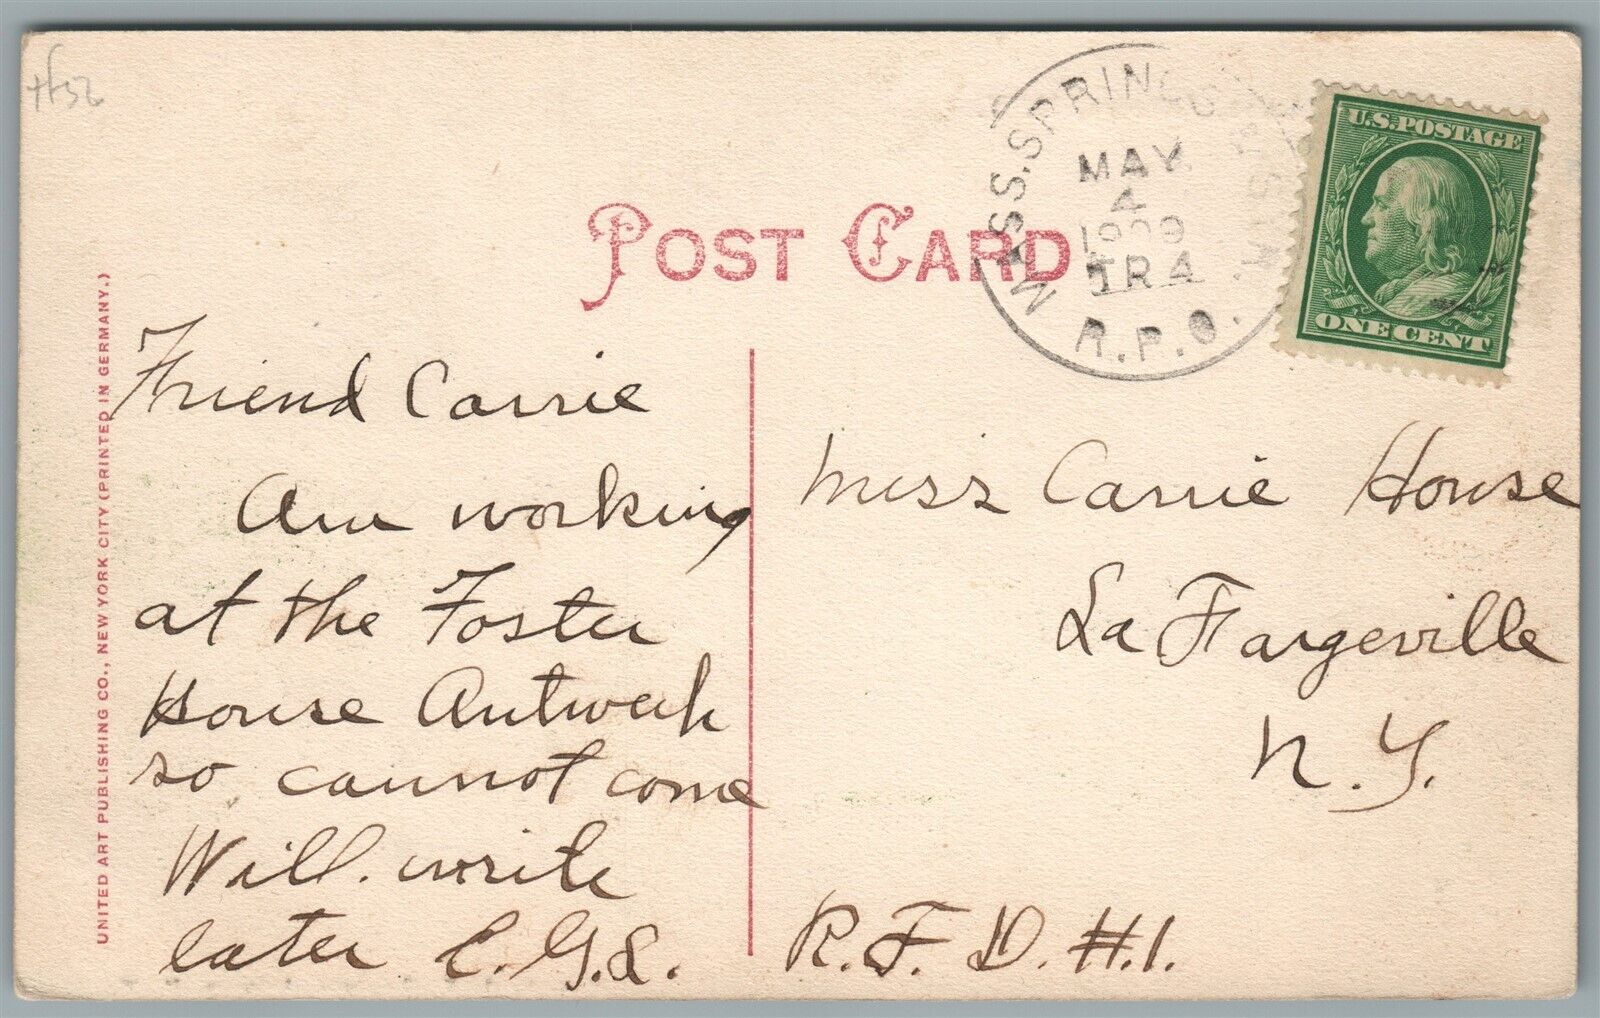 POST CARD
MASS. SPRINGS
MAY
4
1909
TR 4
R.P.O.
U.S. POSTAGE
ONE CENT
UNITED ART PUBLISHING CO., NEW YORK CITY (PRINTED IN GERMANY.)
Friend Carrie
Am working
at the Foster
House Antwerk
so cannot come
Will. write
later C.G.L.
Miss Carrie House
La Fargeville
N.Y.
R.F.D. #.1.